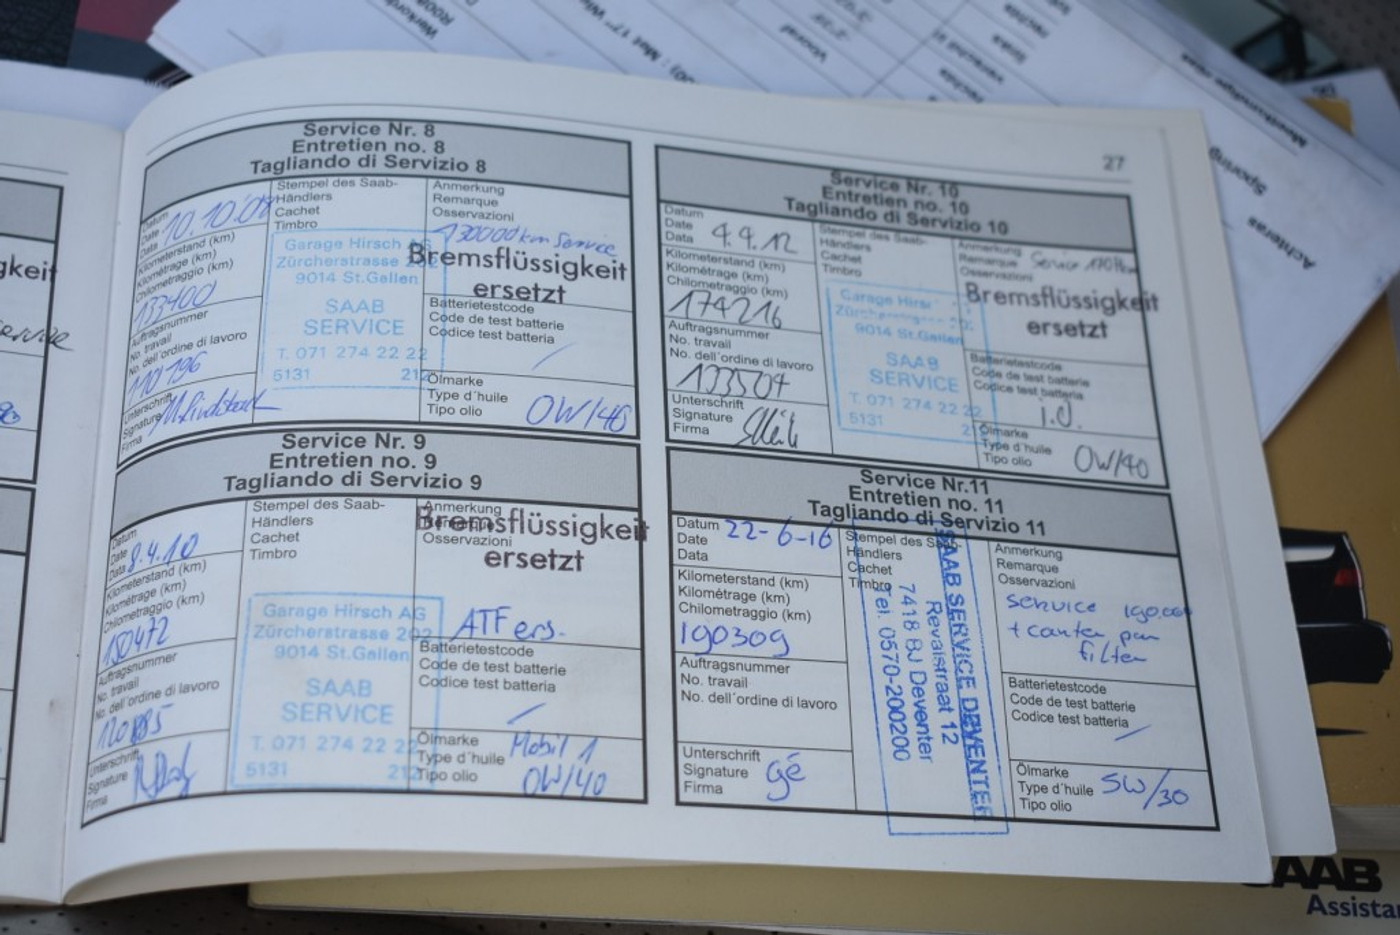 27
Service Nr. 8
Entretien no. 8
Tagliando di Servizio 8
Datum
Date
Data
10.10.08
Kilometerstand (km)
Kilométrage (km)
Chilometraggio (km)
133400
Auftragsnummer
No. travail
No. dell´ordine di lavoro
110196
Unterschrift
Signature
Firma
Stempel des Saab-
Händlers
Cachet
Timbro
Garage Hirsch AG
Zürcherstrasse 202
9014 St.Gallen
SAAB
SERVICE
T. 071 274 22 22
5131 212
Anmerkung
Remarque
Osservazioni
130000km Service
Bremsflüssigkeit
ersetzt
Batterietestcode
Code de test batterie
Codice test batteria
Ölmarke
Type d´huile
Tipo olio
0W/40
Service Nr. 9
Entretien no. 9
Tagliando di Servizio 9
Datum
Date
Data
8.4.10
Kilometerstand (km)
Kilométrage (km)
Chilometraggio (km)
150472
Auftragsnummer
No. travail
No. dell´ordine di lavoro
120885
Unterschrift
Signature
Firma
Stempel des Saab-
Händlers
Cachet
Timbro
Garage Hirsch AG
Zürcherstrasse 202
9014 St.Gallen
SAAB
SERVICE
T. 071 274 22 22
5131 212
Anmerkung
Remarque
Osservazioni
Bremsflüssigkeit
ersetzt
ATF ers.
Batterietestcode
Code de test batterie
Codice test batteria
Ölmarke
Type d´huile
Tipo olio
Mobil 1
0W/40
Service Nr. 10
Entretien no. 10
Tagliando di Servizio 10
Datum
Date
Data
4.4.12
Kilometerstand (km)
Kilométrage (km)
Chilometraggio (km)
174216
Auftragsnummer
No. travail
No. dell´ordine di lavoro
133507
Unterschrift
Signature
Firma
Stempel des Saab-
Händlers
Cachet
Timbro
Garage Hirsch
Zürcherstrasse 202
9014 St.Gallen
SAAB
SERVICE
T. 071 274 22 22
5131 2
Anmerkung
Remarque
Osservazioni
Service
Bremsflüssigkeit
ersetzt
Batterietestcode
Code de test batterie
Codice test batteria
i.O.
Ölmarke
Type d´huile
Tipo olio
0W/40
Service Nr.11
Entretien no. 11
Tagliando di Servizio 11
Datum
Date
Data
22-6-16
Kilometerstand (km)
Kilométrage (km)
Chilometraggio (km)
190309
Auftragsnummer
No. travail
No. dell´ordine di lavoro
Unterschrift
Signature
Firma
gé
Stempel des Saab-
Händlers
Cachet
Timbro
SAAB SERVICE DEVENTER
Revalstraat 12
7418 BJ Deventer
Tel. 0570-200200
Anmerkung
Remarque
Osservazioni
service 190.000
+ carter
filter
Batterietestcode
Code de test batterie
Codice test batteria
Ölmarke
Type d´huile
Tipo olio
5W/30
SAAB
Assista